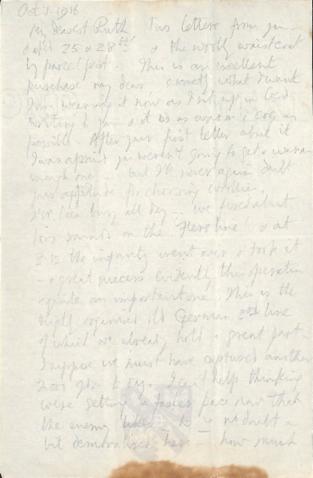 Oct 1. 1916
My dearest Ruth Two letters from you -
dated 25 & 28th & the woolly waistcoat
by parcel post. This is an excellent
purchase my dear exactly what I want
I am wearing it now as I sit up in bed
writing to you & it is as warm & cosy as
possible. After your first letter about it
I was afraid you weren't going to get a warm
enough one but I'll never again doubt
your aptitude for choosing woollies.
I've been busy all day - we fired about
rounds on the Fleurs line & at
3.15 the infantry went over & took it
- a great success evidently this operation
& quite an important one. This is the
highly organised old German line
of which we already hold a great part.
I suppose we must have captured another
yds to day. I can't help thinking
we're setting a pace now that
the enemy He is no doubt a
bit demoralised here - how much